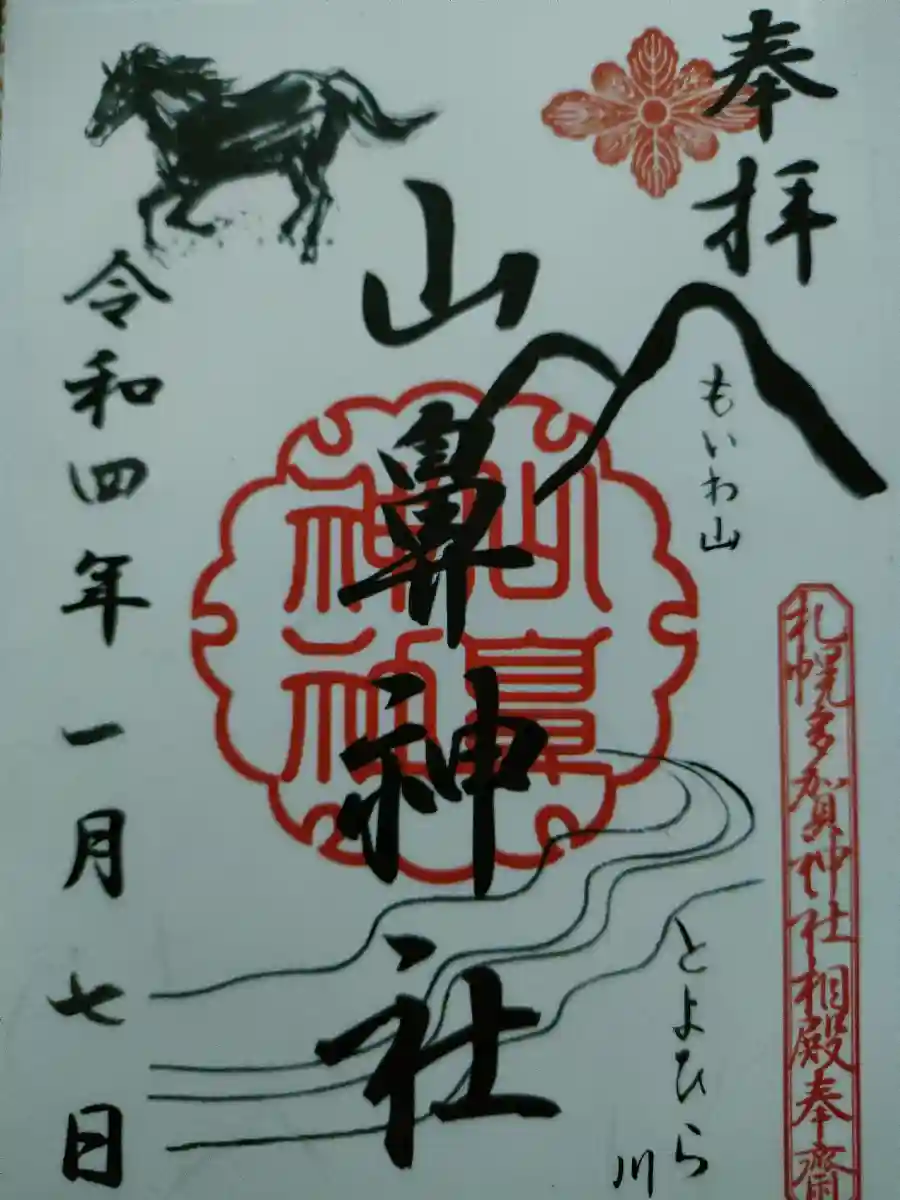 奉拝
もいわ山
とよひら川
札幌多賀神社相殿奉齋
山鼻神社
山鼻
神社
令和四年一月七日